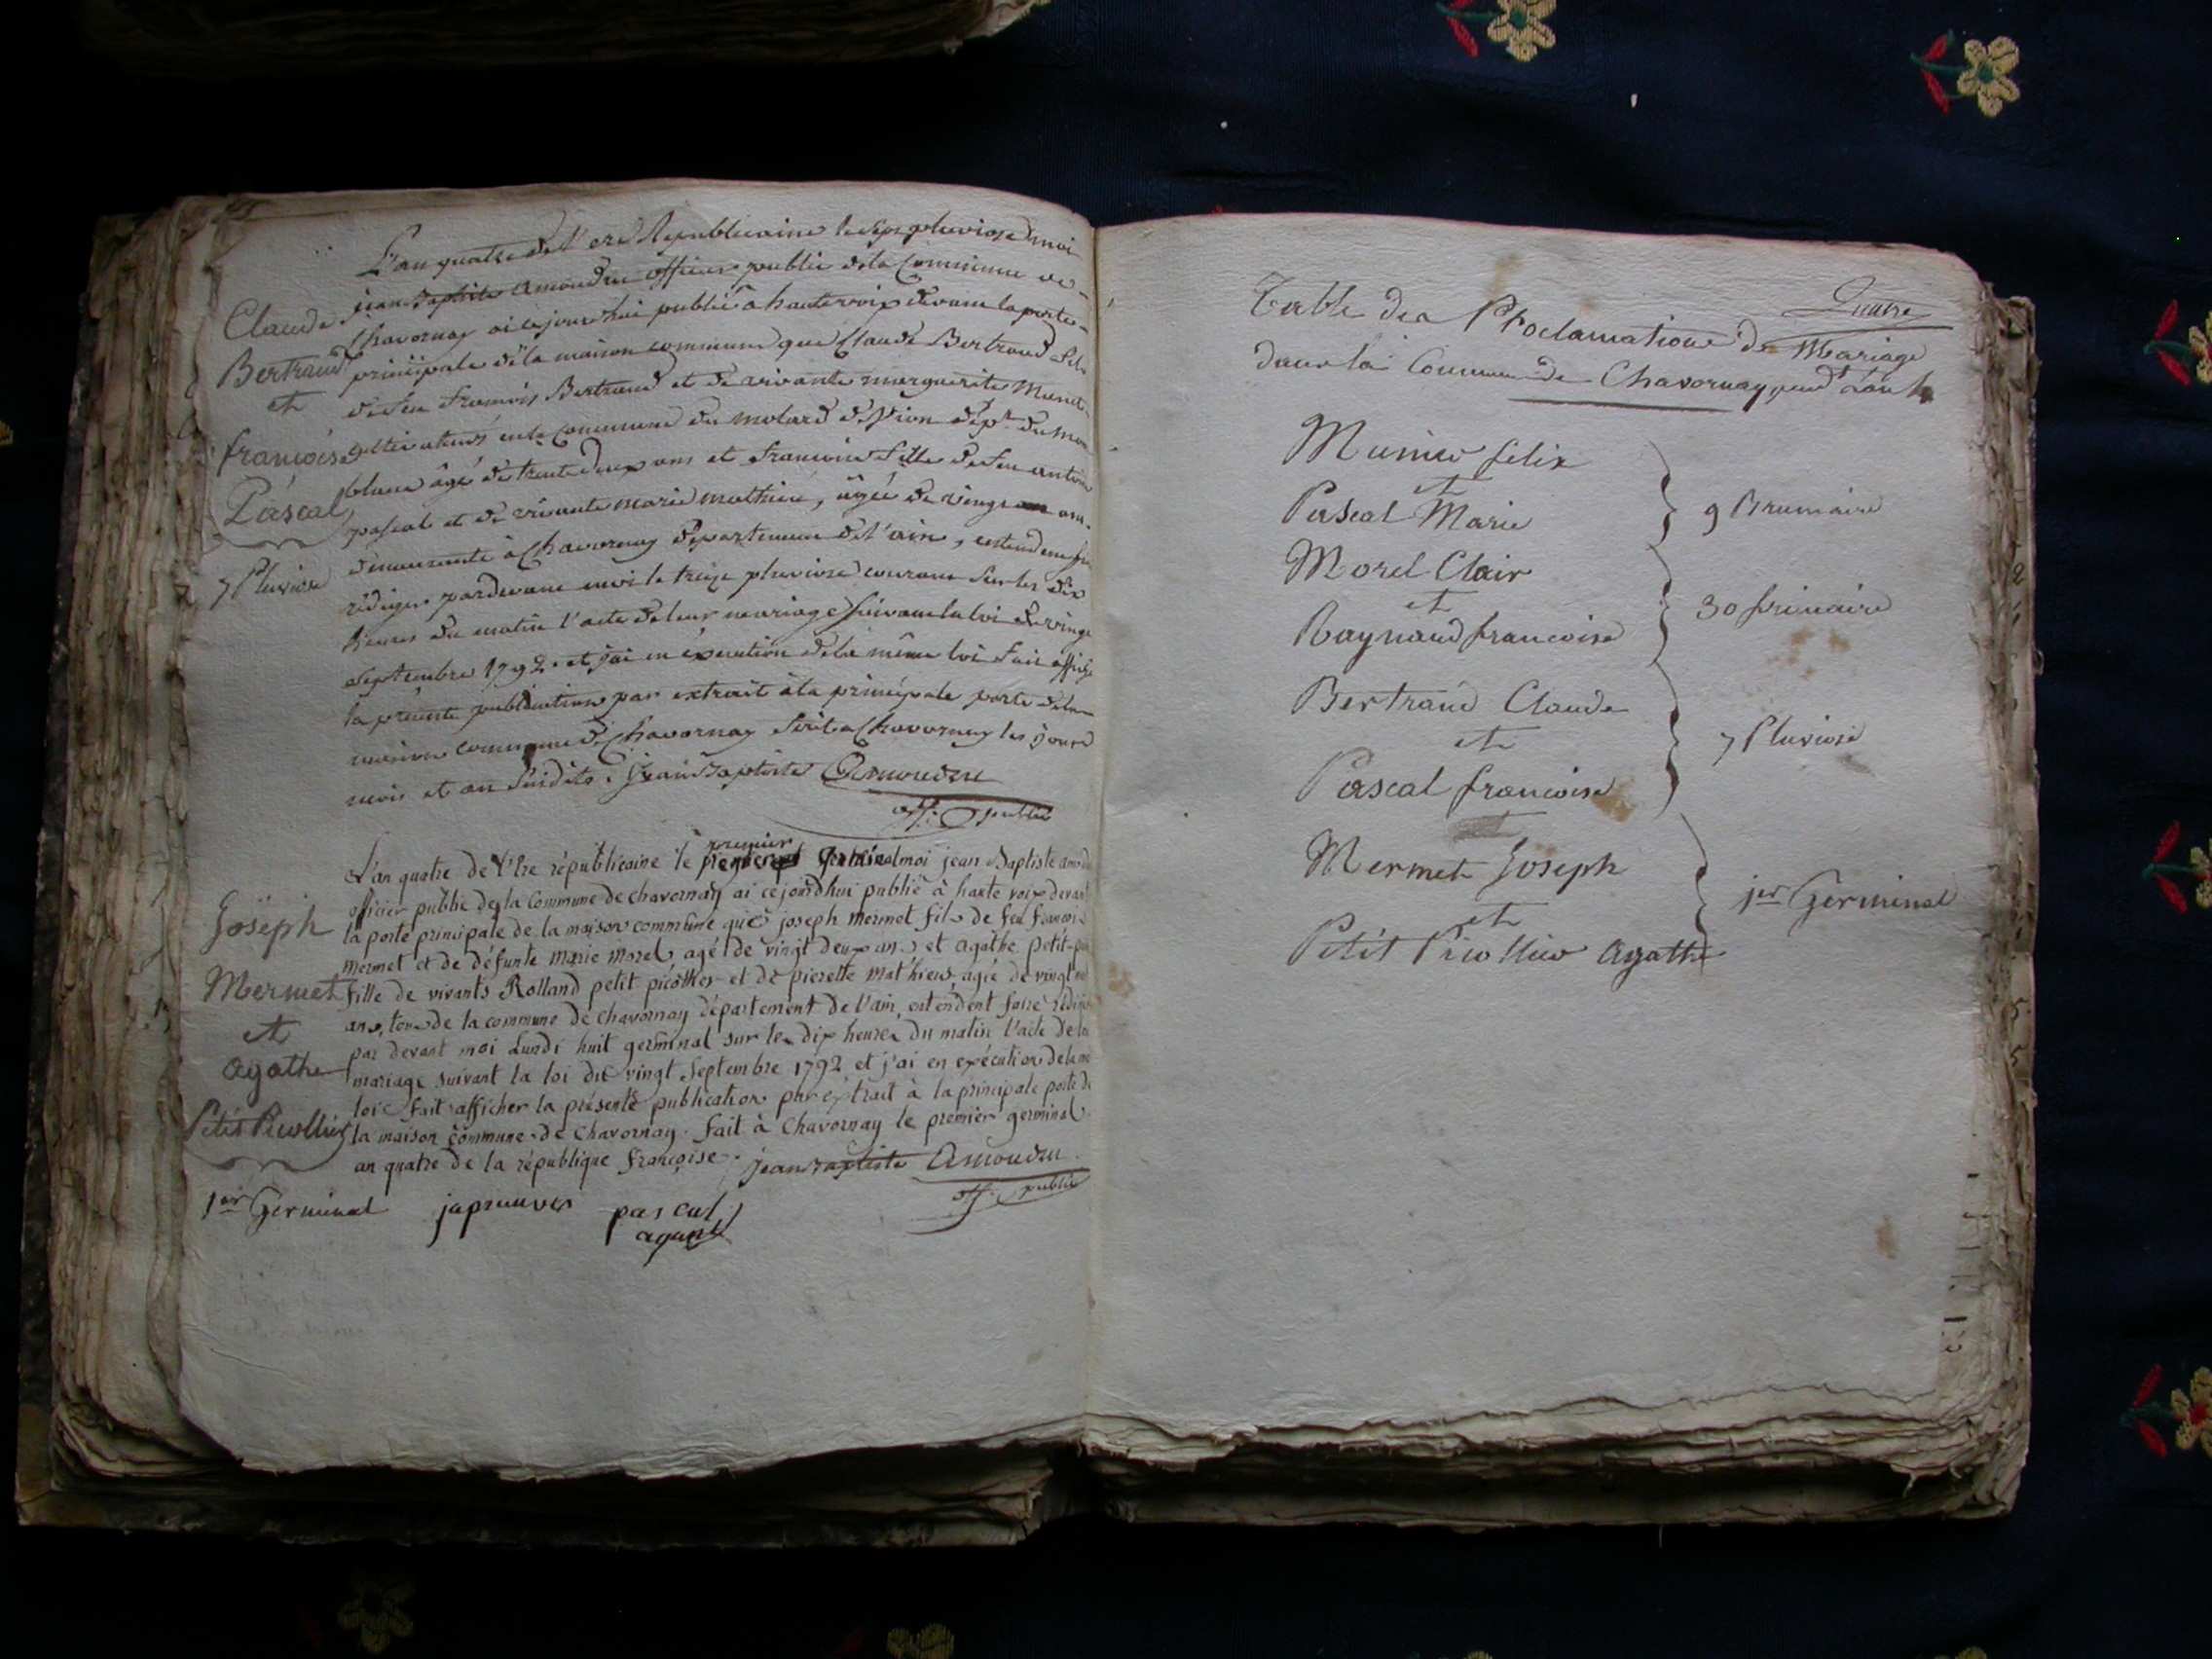 L'an quatre de l'ere Republicaine le sept pluviose moi
jean Baptiste Amoudru officier public de la Commune de
Chavornay ai cejourdhui publié à haute voix devant la porte
principale de la maison commune que Claude Bertrand fils
de feu francois Bertrand et de vivante marguerite
cultivateurs en la Commune du molard de Vion dépt. du mon
blanc âgé de trente deux ans et francoise fille de feu antoine
pascal et de vivante marie mathieu, âgée de vingt ans
demeurante à Chavornay département de l'ain, entendent
rédiger pardevant moi le treize pluviose courant sur les dix
heures du matin l'acte de leur mariage suivant la loi de vingt
septembre 1792. et j'ai en éxecution de la même loi fait afficher
la présente publication par extrait à la principale porte de la
maison commune de Chavornay fait à Chavornay les jour
mois et an susdits. Jean Baptiste Amoudru
off. public
Claude
Bertrand
et
françoise
Pascal
7 Pluviose
premier
L'an quatre de l'Ere républicaine le germinal moi jean Baptiste amoud
officier public de la Commune de chavornay ai cejourdhui publié à haute voix devant
la porte principale de la maison commune que joseph mermet fils de feu francois
mermet et de défunte marie morel, agé de vingt deux ans et agathe petit-
fille de vivants Rolland petit picollier et de pierette mathieu, agée de vingt
ans, tous de la commune de chavornay département de l'ain, entendent faire rédiger
par devant moi Lundi huit germinal sur les dix heures du matin l'acte de leur
mariage suivant la loi du vingt septembre 1792 et j'ai en exécution de la
loi fait afficher la présente publication par extrait à la principale porte de
la maison commune de Chavornay. fait à Chavornay le premier germinal
an quatre de la république françoise. jean Baptiste Amoudru
off. public
Joseph
Mermet
et
agathe
Petit Picollier
1er Germinal japrouves pascal
agent
Quatre
Table des Proclamations de Mariage
dans la Commune de Chavornay, pendt L'an 4
Munier felix
et
Pascal Marie
9 Brumaire
Morel Clair
et
Raynaud francoise
30 frimaire
Bertrand Claude
et
Pascal francoise
7 Pluviose
Mermet Joseph
et
Petit Picollier Agathe
1er Germinal